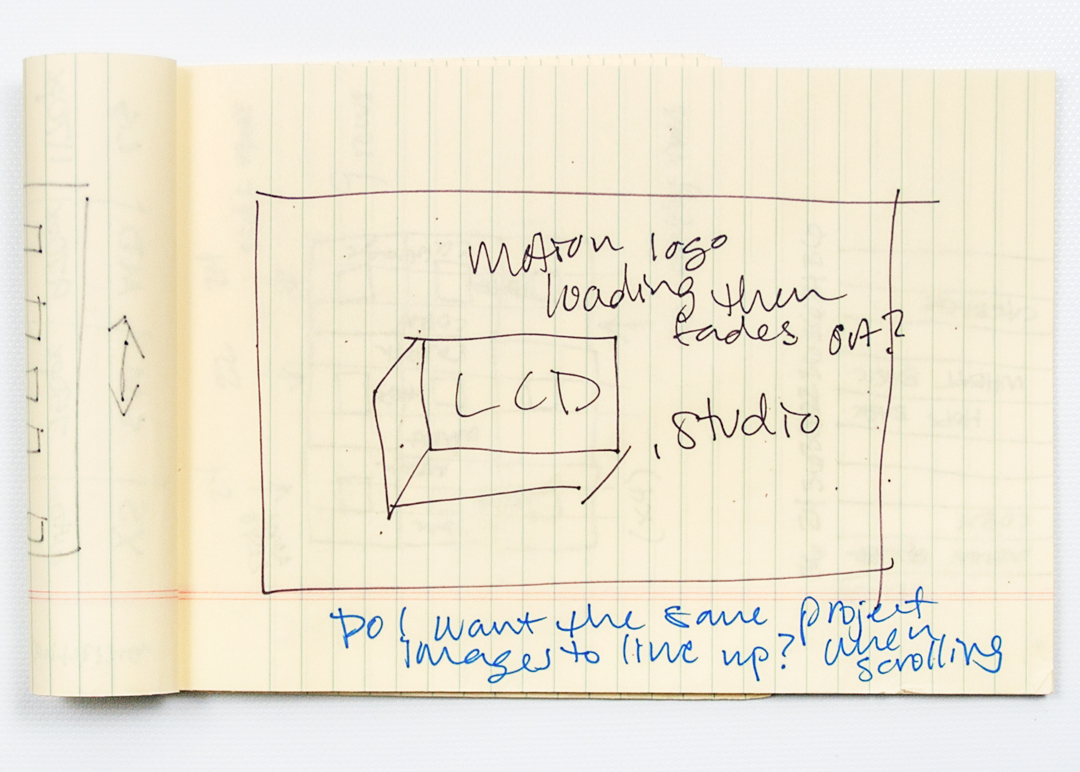 motion logo
loading then
fades out?
LCD
, studio
Do I want the same project
images to line up? when
scrolling